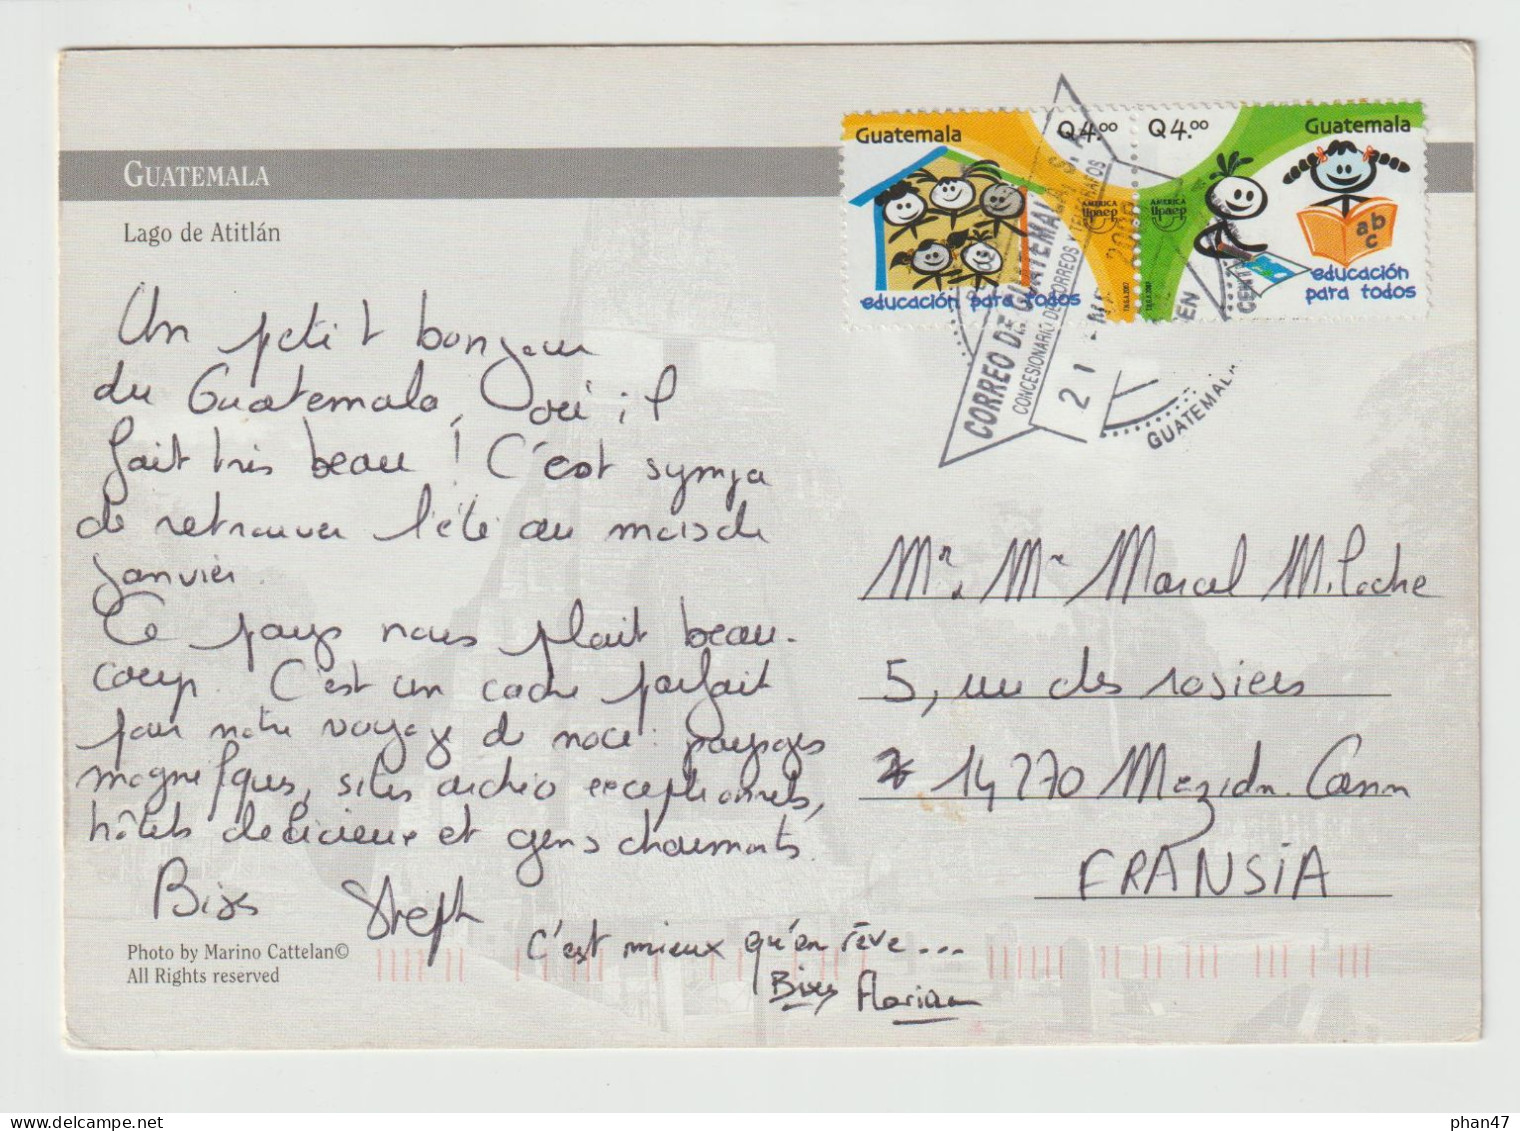 GUATEMALA
Lago de Atitlán
Un petit bonjour
du Guatemala, oui il
fait très beau ! C'est sympa
de retrouver l'été au mois de
janvier.
Ce pays nous plait beau-
coup. C'est un cadre parfait
pour notre voyage de noce : paysages
magnifiques, sites archéo exceptionnels,
hôtels delicieux et gens charmants.
Bises Steph
C'est mieux qu'en rêve...
Bises Florian
Photo by Marino Cattelan©
All Rights reserved
Guatemala Q4.00
educación para todos
AMERICA
upaep
Q4.00 Guatemala
AMERICA
upaep
educación
para todos
CORREO DE GUATEMALA S.A.
CONCESIONARIO DE CORREOS Y TELEGRAFOS
21
GUATEMALA
Mr. Me Marcel Miloche
5, rue des rosiers
14270 Mezidon. Canon
FRANSIA
phan47